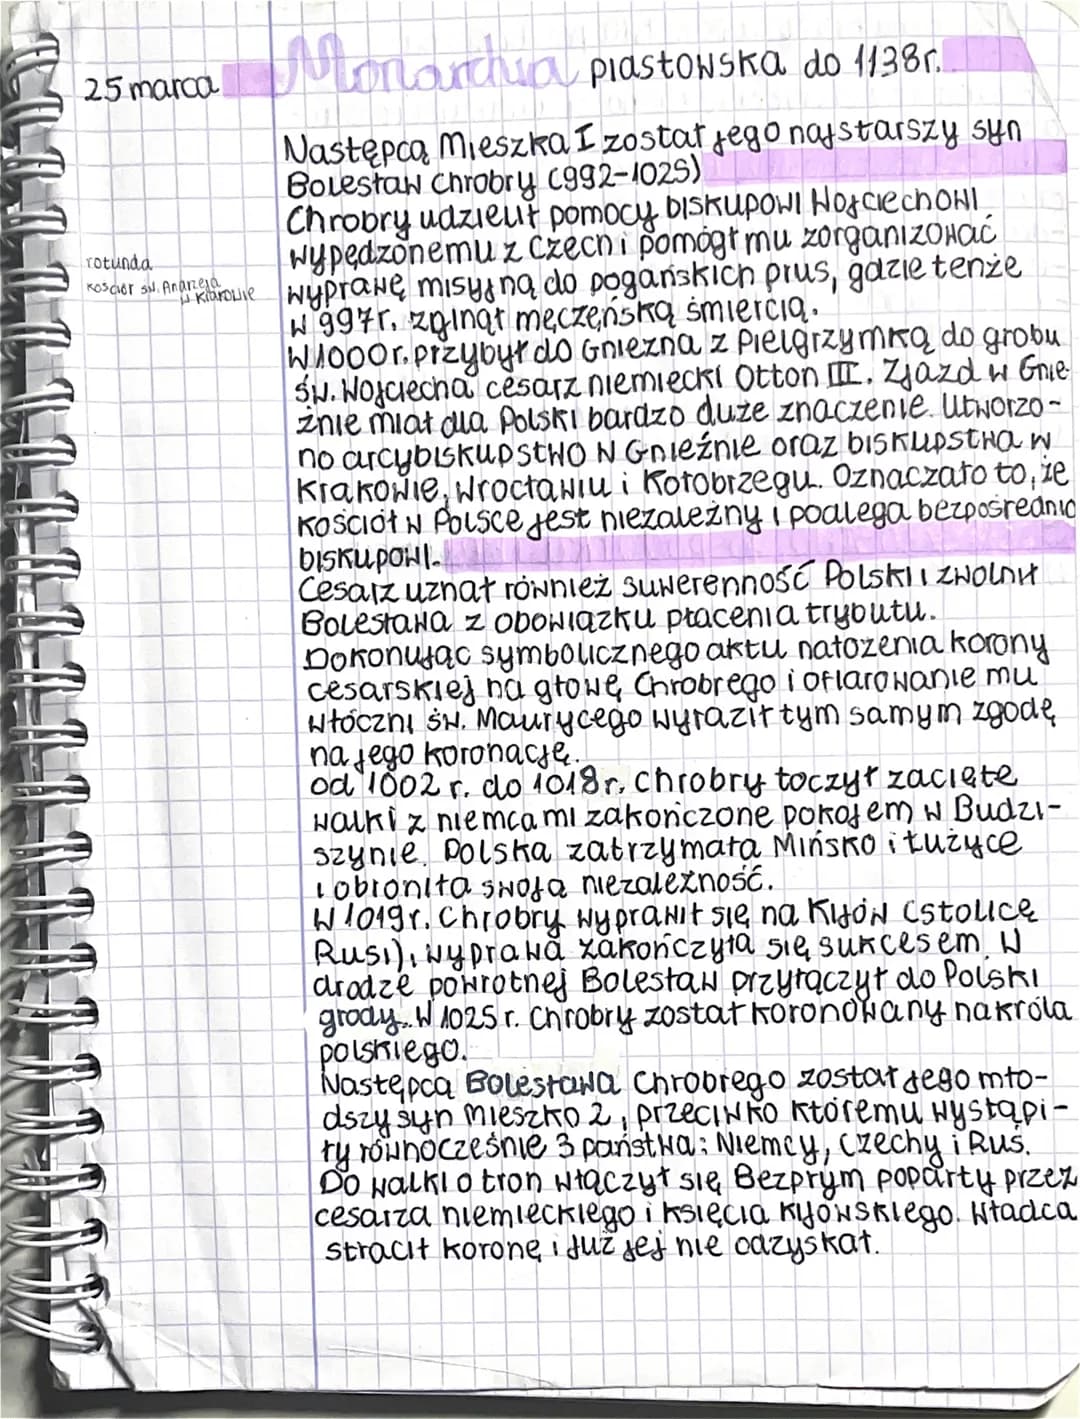 25 marca Monarchia piastowska do 1138r.
Następcą Mieszka I został jego najstarszy syn
Bolesław Chrobry (992-1025)
Chrobry udzielił pomocy biskupowi Wojciechowi
wypędzonemu z Czech i pomógł mu zorganizować
rotunda
kościół św. Andrzeja
w Krakowie
wyprawę misyjną do pogańskich prus, gdzie tenże
w 997r. zginął męczeńską śmiercią.
W 1000r. przybył do Gniezna z Pielgrzymką do grobu
św. Wojciecha cesarz niemiecki Otton III. Zjazd w Gnie-
źnie miał dla Polski bardzo duże znaczenie. Utworzo-
no arcybiskupstwo w Gnieźnie oraz biskupstwa w
Krakowie, Wrocławiu i Kołobrzegu. Oznaczało to, że
kościół w Polsce jest niezależny i podlega bezpośrednio
biskupowi.
Cesarz uznał również suwerenność Polski i zwolnił
Bolesława z obowiązku płacenia trybutu.
Dokonując symbolicznego aktu nałożenia korony
cesarskiej na głowę Chrobrego i ofiarowanie mu
włóczni św. Maurycego wyraził tym samym zgodę
na jego koronację.
od 1002 r. do 1018r. Chrobry toczył zacięte
walki z niemcami zakończone pokojem w Budzi-
szynie. Polska zatrzymała Mińsko i Łużyce
i obroniła swoją niezależność.
W 1019r. Chrobry wyprawił się na Kijów (stolicę
Rusi), wyprawa zakończyła się sukcesem. W
drodze powrotnej Bolesław przyłączył do Polski
grody... W 1025 r. Chrobry został koronowany na króla
polskiego.
Następcą Bolesława Chrobrego został jego mło-
dszy syn Mieszko 2, przeciwko któremu wystąpi-
ły równocześnie 3 państwa: Niemcy, Czechy i Ruś.
Do walki o tron włączył się Bezprym poparty przez
cesarza niemieckiego i księcia kijowskiego. Władca
stracił koronę i już jej nie odzyskał.